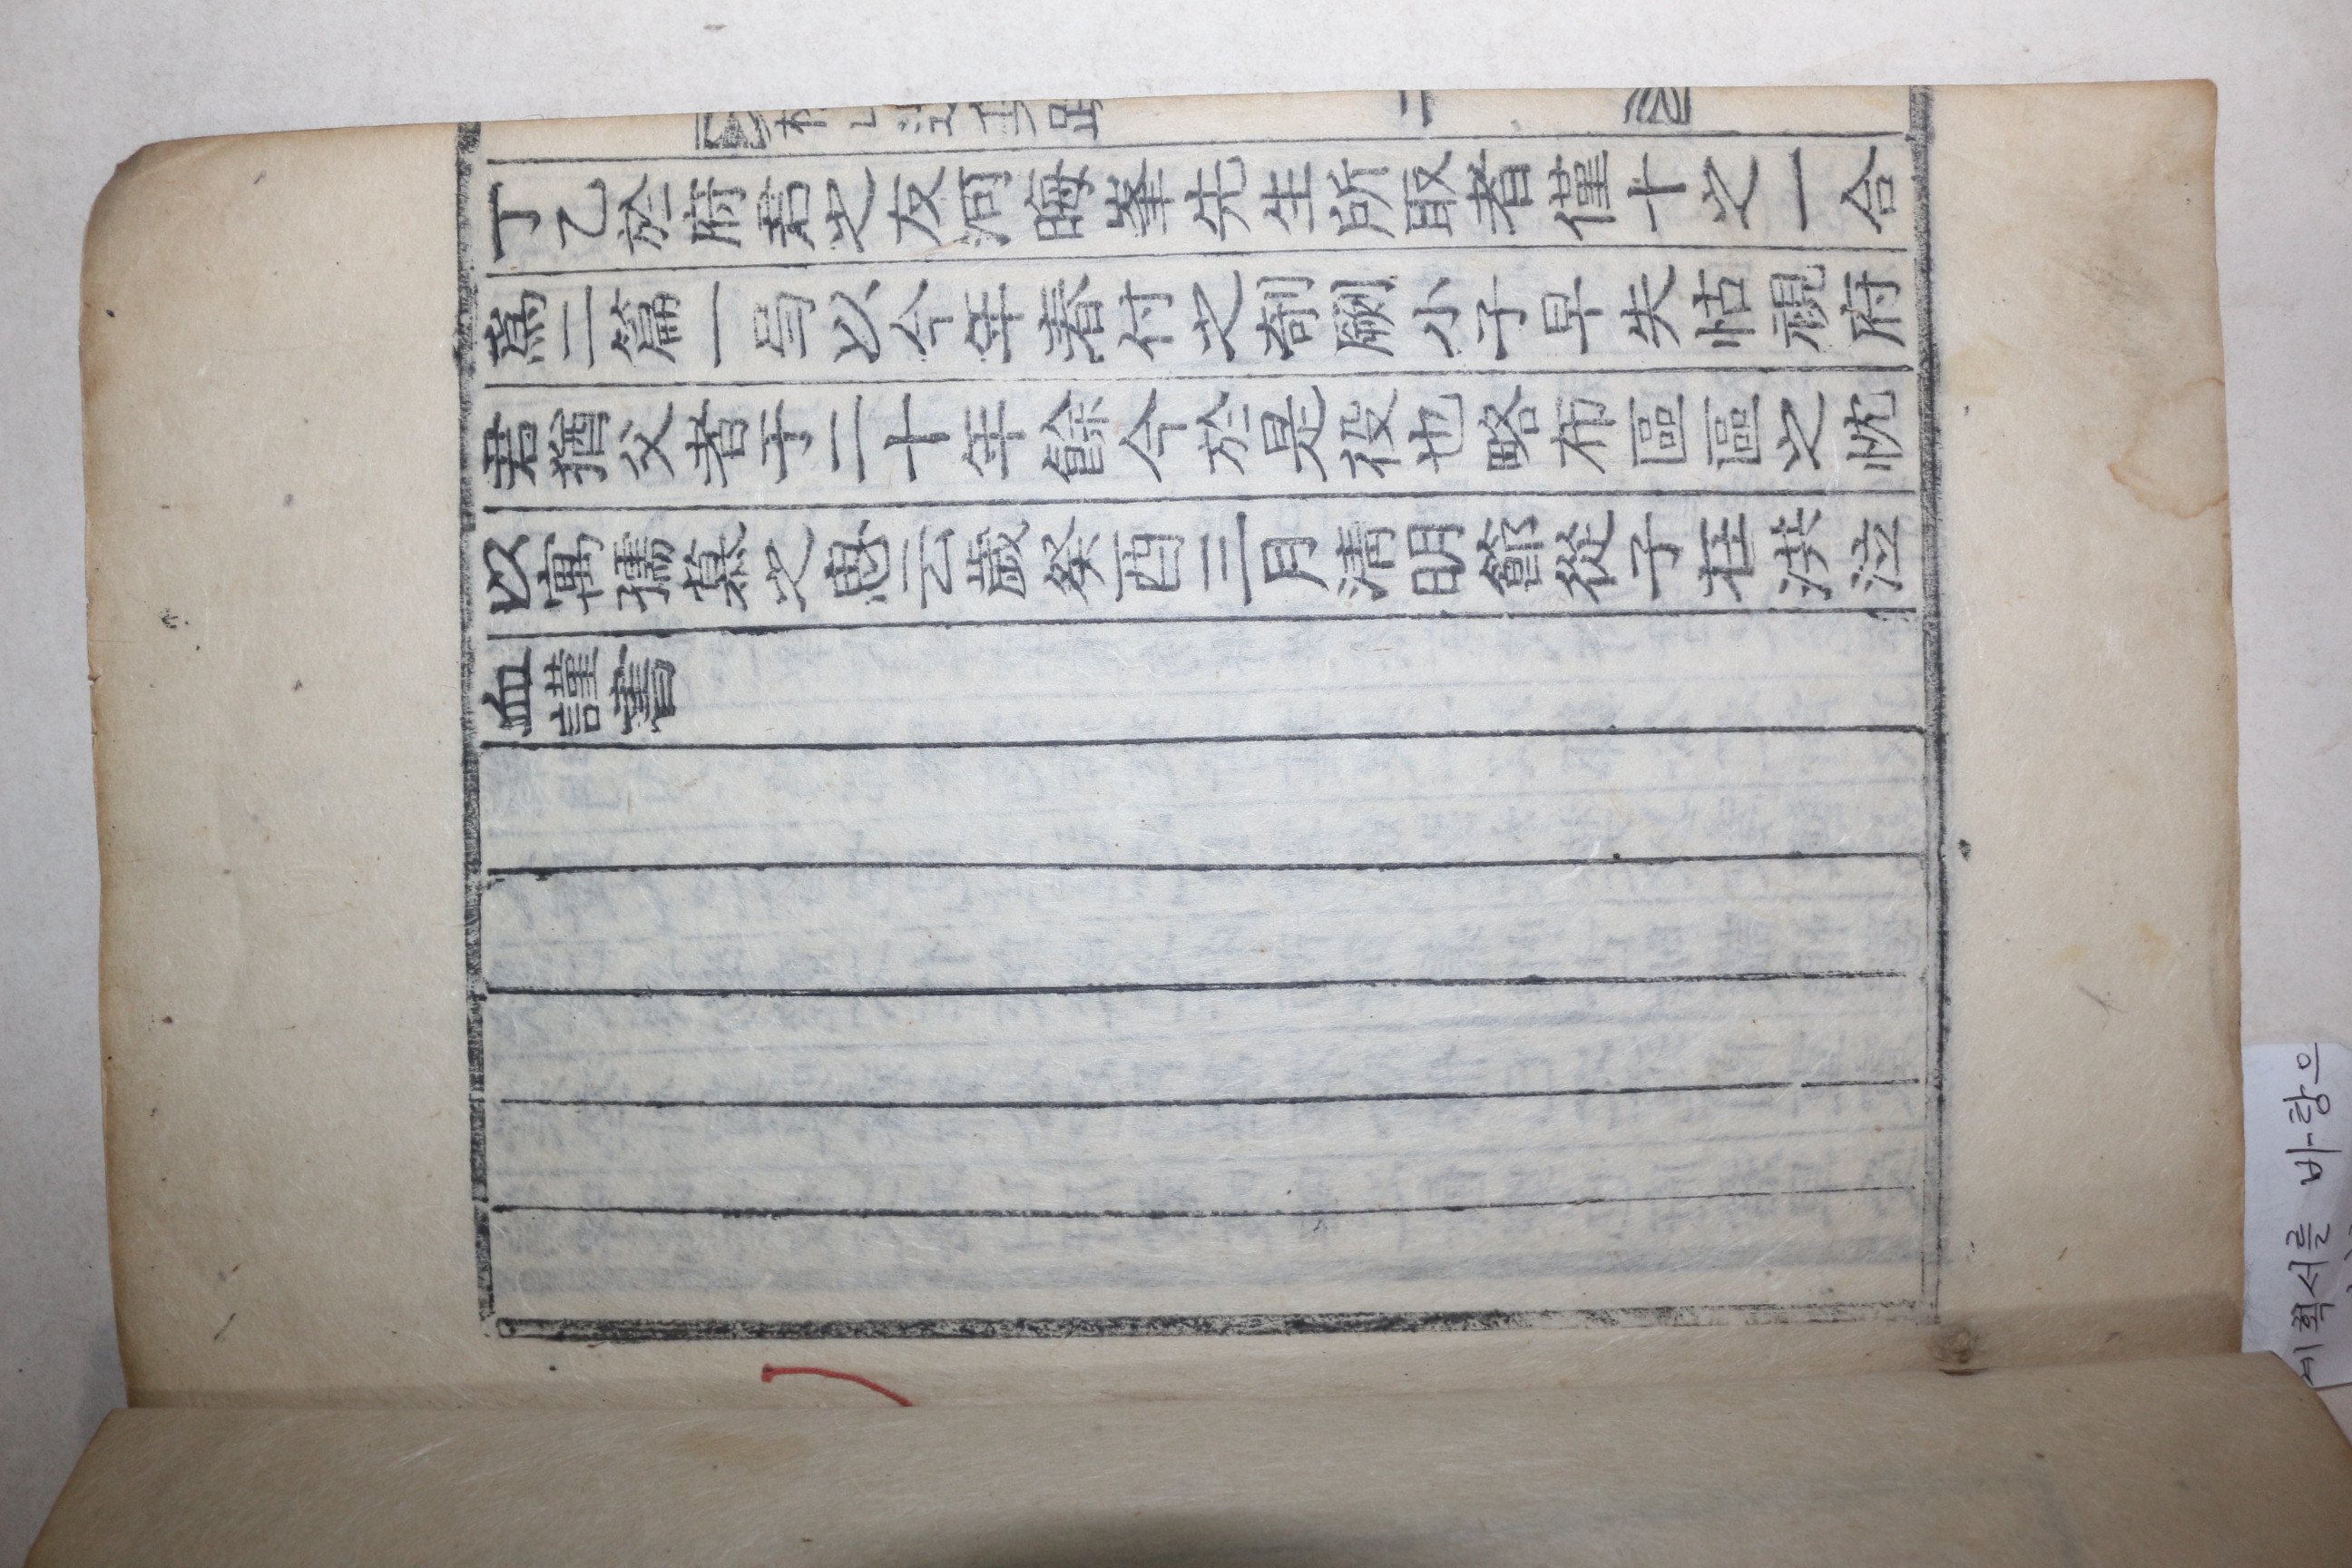 丁乙於府君之友河晦峯先生所取者僅十之一合
為二篇一号以今年春付之剞劂小子早失怙視府
君猶父者于二十年餘今於是役也略布區區之忱
以寓孺慕之思云歲癸酉三月清明節從子在洪泣
血謹書
계획서를 바탕으